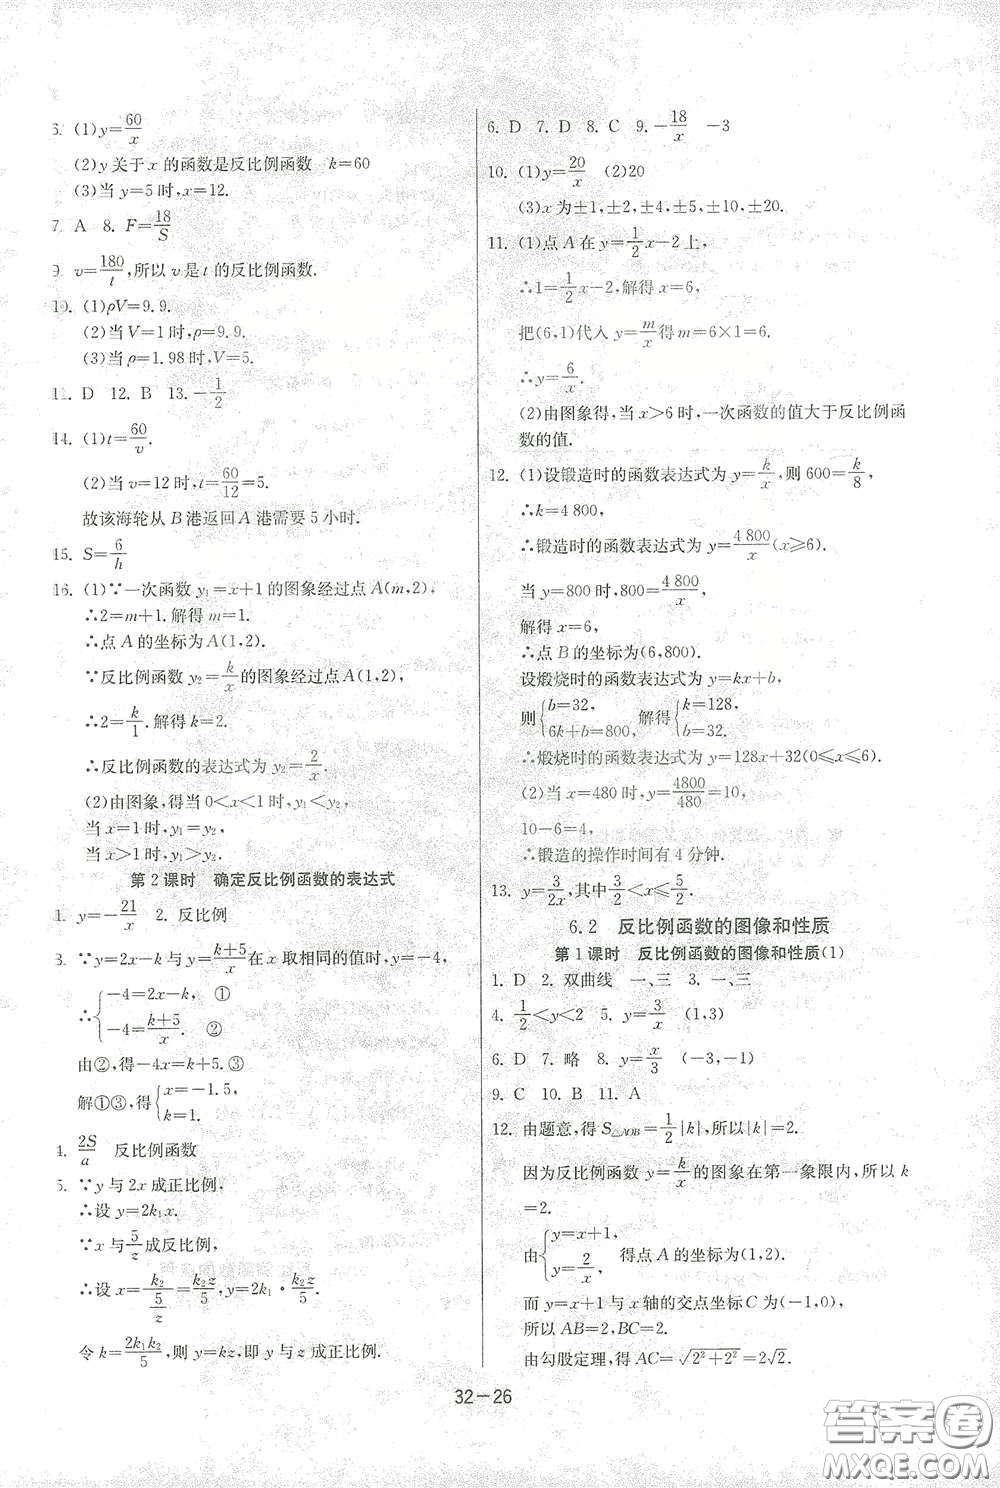 6. (1)y=60/x
(2)y 关于 x 的函数是反比例函数 k=60
(3)当 y=5 时,x=12.
7. A 8. F=18/S
9. v=180/t,所以 v 是 t 的反比例函数.
10. (1)ρV=9.9.
(2)当 V=1 时,ρ=9.9.
(3)当 ρ=1.98 时,V=5.
11. D 12. B 13. -1/2
14. (1)t=60/v.
(2)当 v=12 时,t=60/12=5.
故该海轮从 B 港返回 A 港需要 5 小时.
15. S=6/h
16. (1)∵一次函数 y₁=x+1 的图象经过点 A(m,2),
∴2=m+1.解得 m=1.
∴点 A 的坐标为 A(1,2).
∵反比例函数 y₂=k/x 的图象经过点 A(1,2),
∴2=k/1.解得 k=2.
∴反比例函数的表达式为 y₂=2/x.
(2)由图象,得当 0<x<1 时,y₁<y₂,
当 x=1 时,y₁=y₂,
当 x>1 时,y₁>y₂.
第 2 课时 确定反比例函数的表达式
1. y=-21/x 2. 反比例
3. ∵y=2x-k 与 y=(k+5)/x 在 x 取相同的值时,y=-4,
∴{-4=2x-k, ①
-4=(k+5)/x. ②
由②,得-4x=k+5.③
解①③,得{x=-1.5,
k=1.
4. 2S/a 反比例函数
5. ∵y 与 2x 成正比例,
∴设 y=2k₁x.
∵x 与 5/z 成反比例,
∴设 x=k₂/(5/z)=k₂z/5,y=2k₁·k₂z/5.
令 k=2k₁k₂/5,则 y=kz,即 y 与 z 成正比例.
6. D 7. D 8. C 9. -18/x -3
10. (1)y=20/x (2)20
(3)x 为±1,±2,±4,±5,±10,±20.
11. (1)点 A 在 y=1/2x-2 上,
∴1=1/2x-2,解得 x=6,
把(6,1)代入 y=m/x 得 m=6×1=6.
∴y=6/x.
(2)由图象得,当 x>6 时,一次函数的值大于反比例函
数的值.
12. (1)设锻造时的函数表达式为 y=k/x,则 600=k/8,
∴k=4 800,
∴锻造时的函数表达式为 y=4 800/x(x≥6).
当 y=800 时,800=4 800/x,
解得 x=6,
∴点 B 的坐标为(6,800).
设煅烧时的函数表达式为 y=kx+b,
则{b=32, 解得{k=128,
6k+b=800, b=32.
∴煅烧时的函数表达式为 y=128x+32(0≤x≤6).
(2)当 x=480 时,y=4800/480=10,
10-6=4,
∴锻造的操作时间有 4 分钟.
13. y=3/2x,其中3/2<x≤5/2.
6.2 反比例函数的图像和性质
第 1 课时 反比例函数的图像和性质(1)
1. D 2. 双曲线 一、三 3. 一、三
4. 1/2<y<2 5. y=3/x (1,3)
6. D 7. 略 8. y=x/3 (-3,-1)
9. C 10. B 11. A
12. 由题意,得 S△AOB=1/2|k|,所以|k|=2.
因为反比例函数 y=k/x 的图象在第一象限内,所以 k
=2.
由{y=x+1,
y=2/x 得点 A 的坐标为(1,2).
而 y=x+1 与 x 轴的交点坐标 C 为(-1,0),
所以 AB=2,BC=2.
由勾股定理,得 AC=√(2²+2²)=2√2.
32-26
答案卷
MXQE.COM